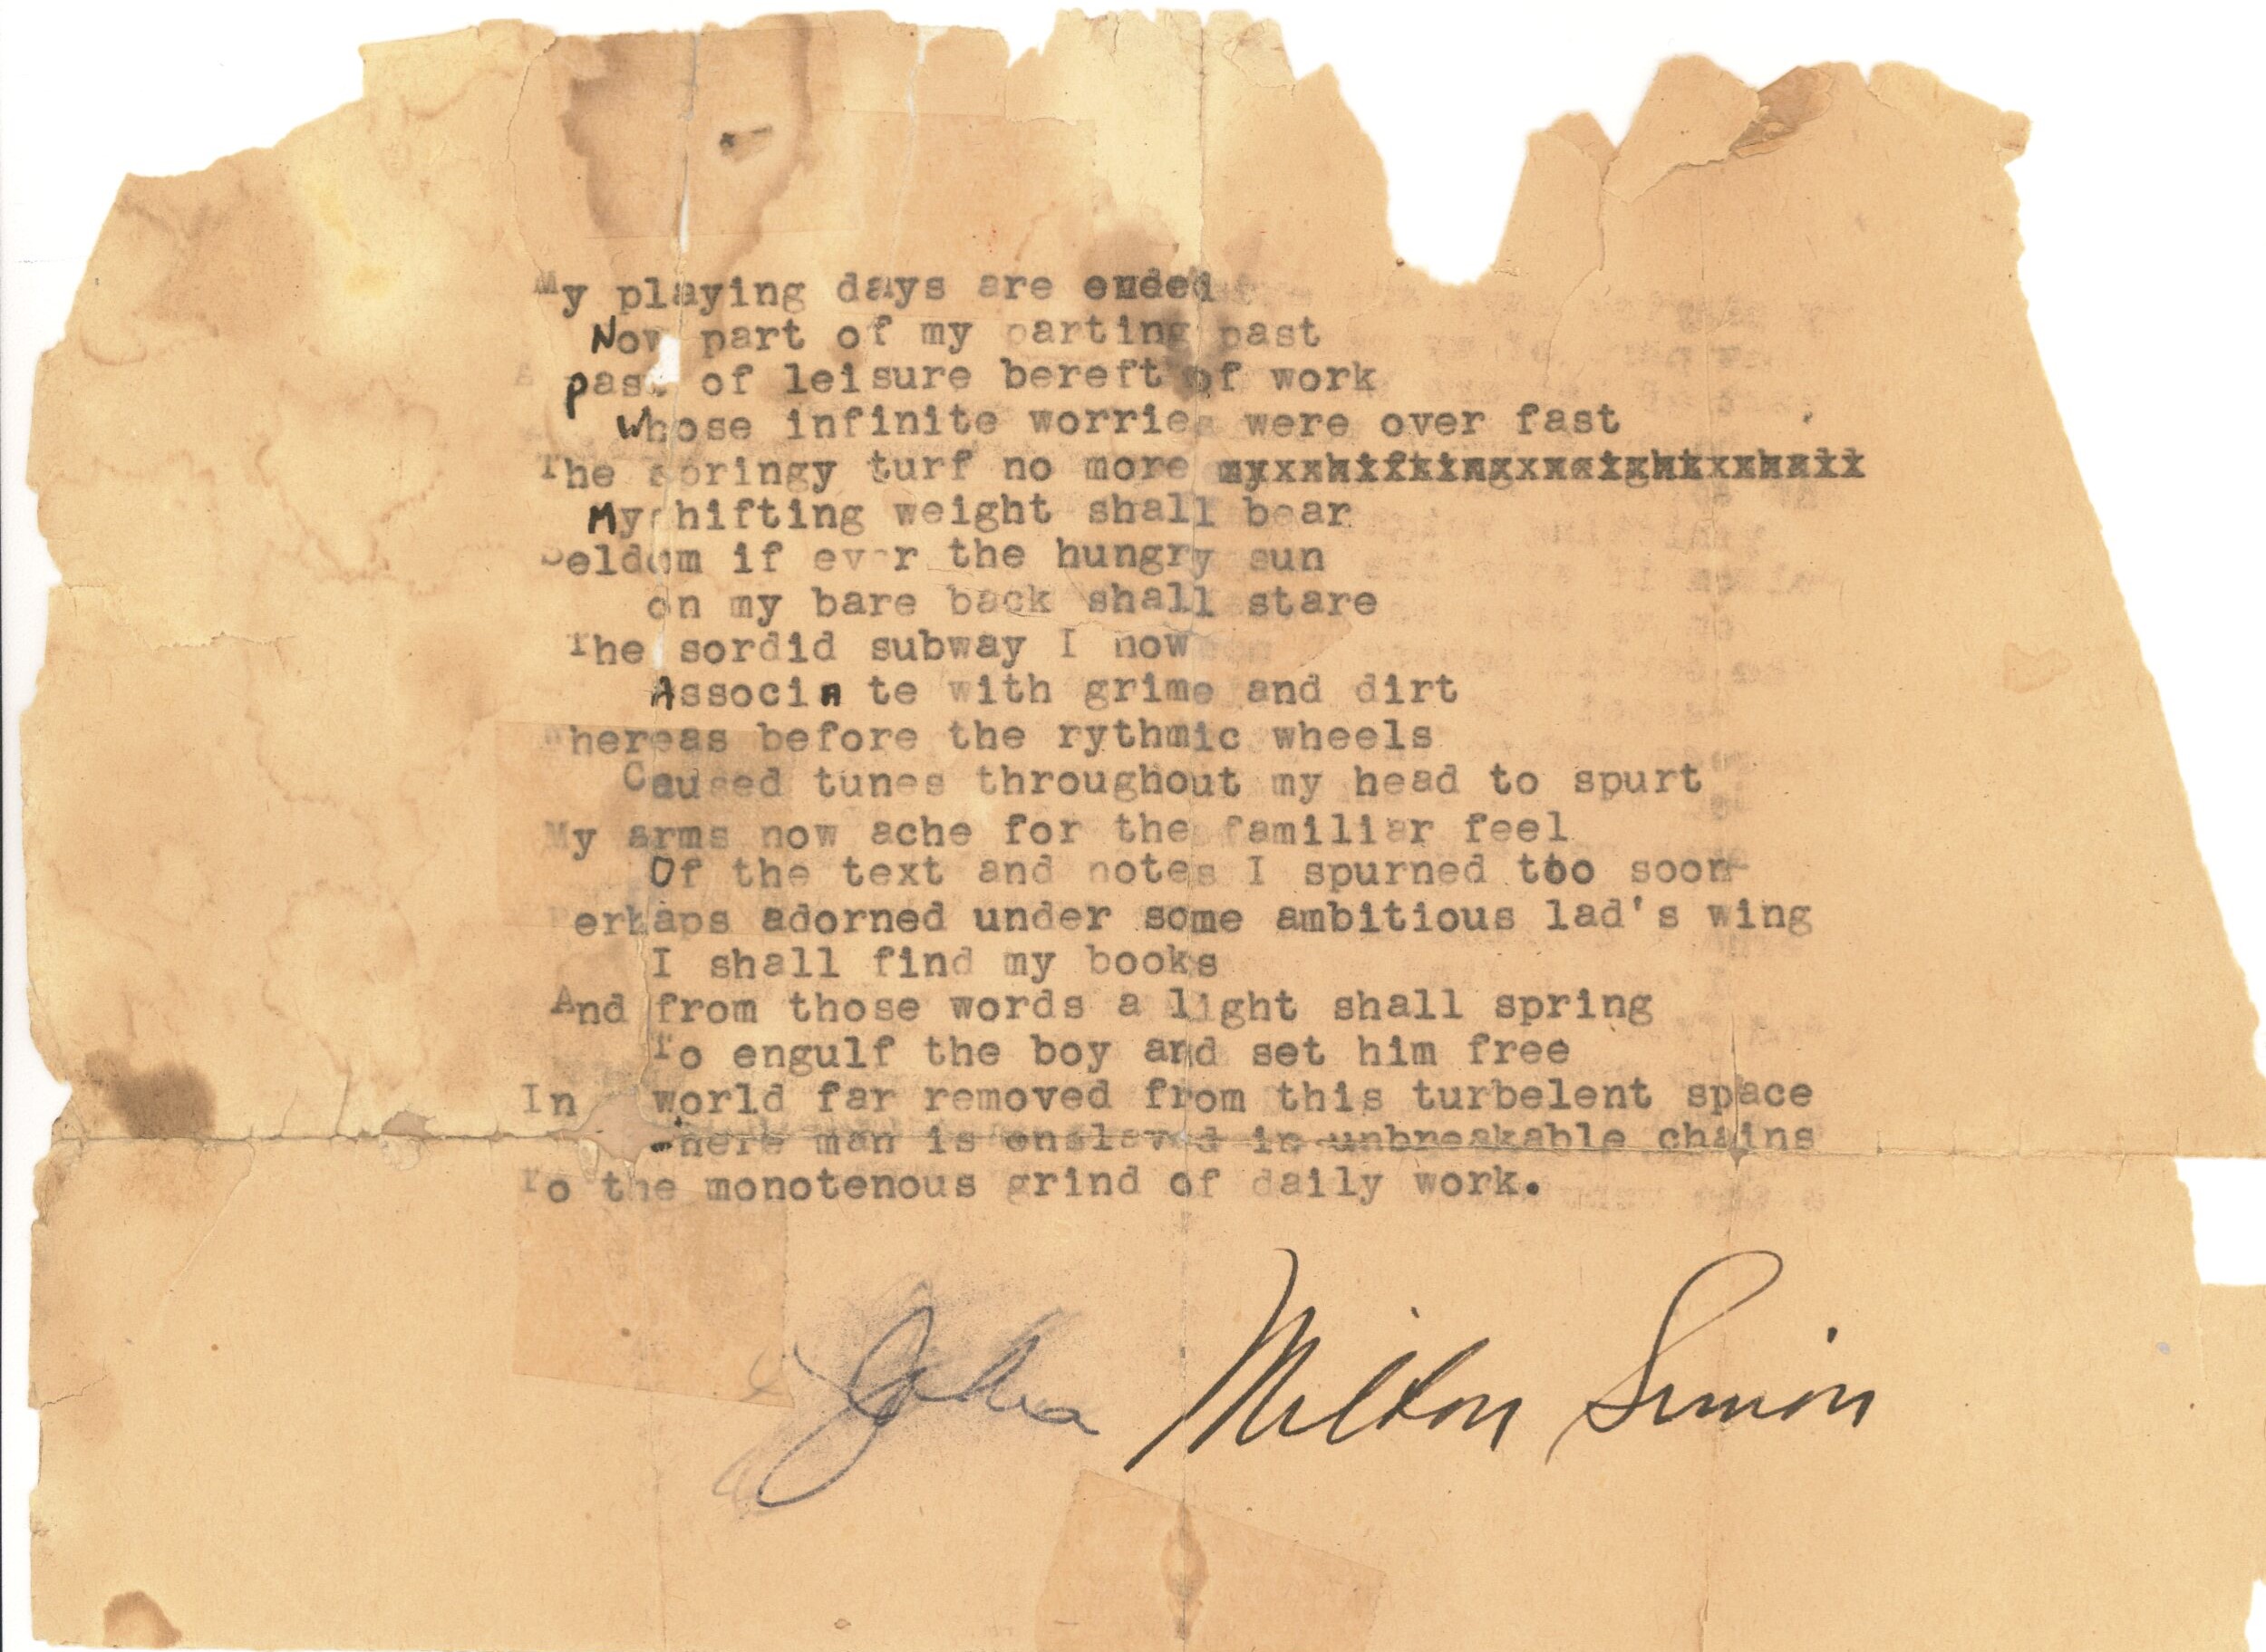 My playing days are ended
Now part of my parting past
past of leisure bereft of work
Whose infinite worries were over fast
The springy turf no more myxshiftingxweightxshall
My shifting weight shall bear
Seldom if ever the hungry sun
on my bare back shall stare
The sordid subway I now
Associa te with grime and dirt
Whereas before the rythmic wheels
Caused tunes throughout my head to spurt
My arms now ache for the familiar feel
Of the text and notes I spurned too soon
Perhaps adorned under some ambitious lad's wing
I shall find my books
And from those words a light shall spring
To engulf the boy and set him free
In world far removed from this turbelent space
Where man is enslaved in unbreakable chains
To the monotenous grind of daily work.
Milton Simon